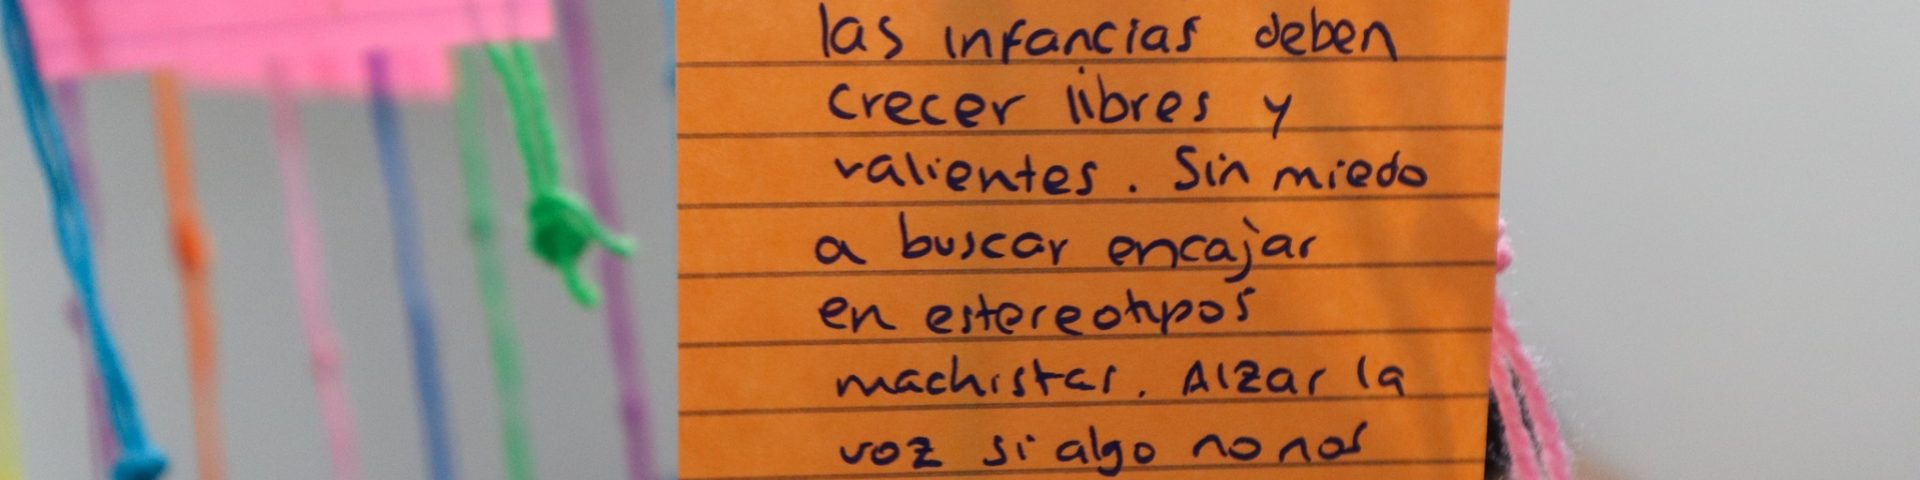 las infancias deben
crecer libres y
valientes. Sin miedo
a buscar encajar
en estereotipos
machistas. Alzar la
voz si algo no nos